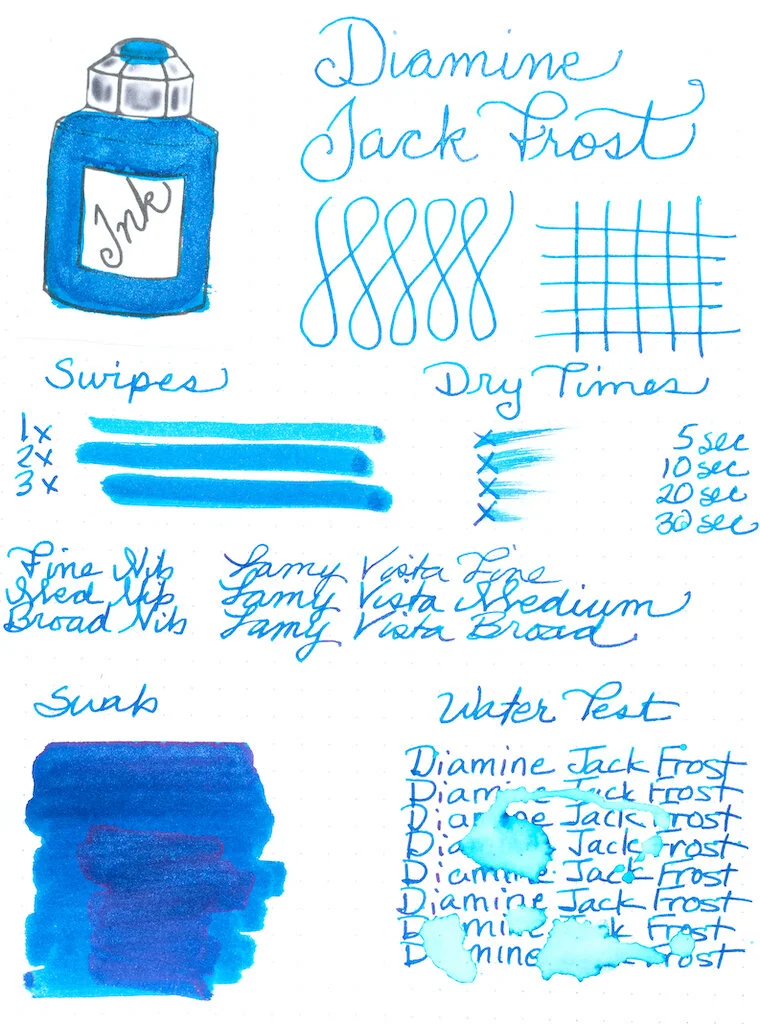 Diamine
Jack Frost
Ink
Swipes
1x
2x
3x
Dry Times
x 5 sec
x 10 sec
x 20 sec
x 30 sec
Fine Nib Lamy Vista Fine
Med Nib Lamy Vista Medium
Broad Nib Lamy Vista Broad
Swab
Water Test
Diamine Jack Frost
Diamine Jack Frost
Diamine Jack Frost
Dia Jack Frost
Diamine Jack Frost
Diamine Jack Frost
D mine Frost
D mine Frost